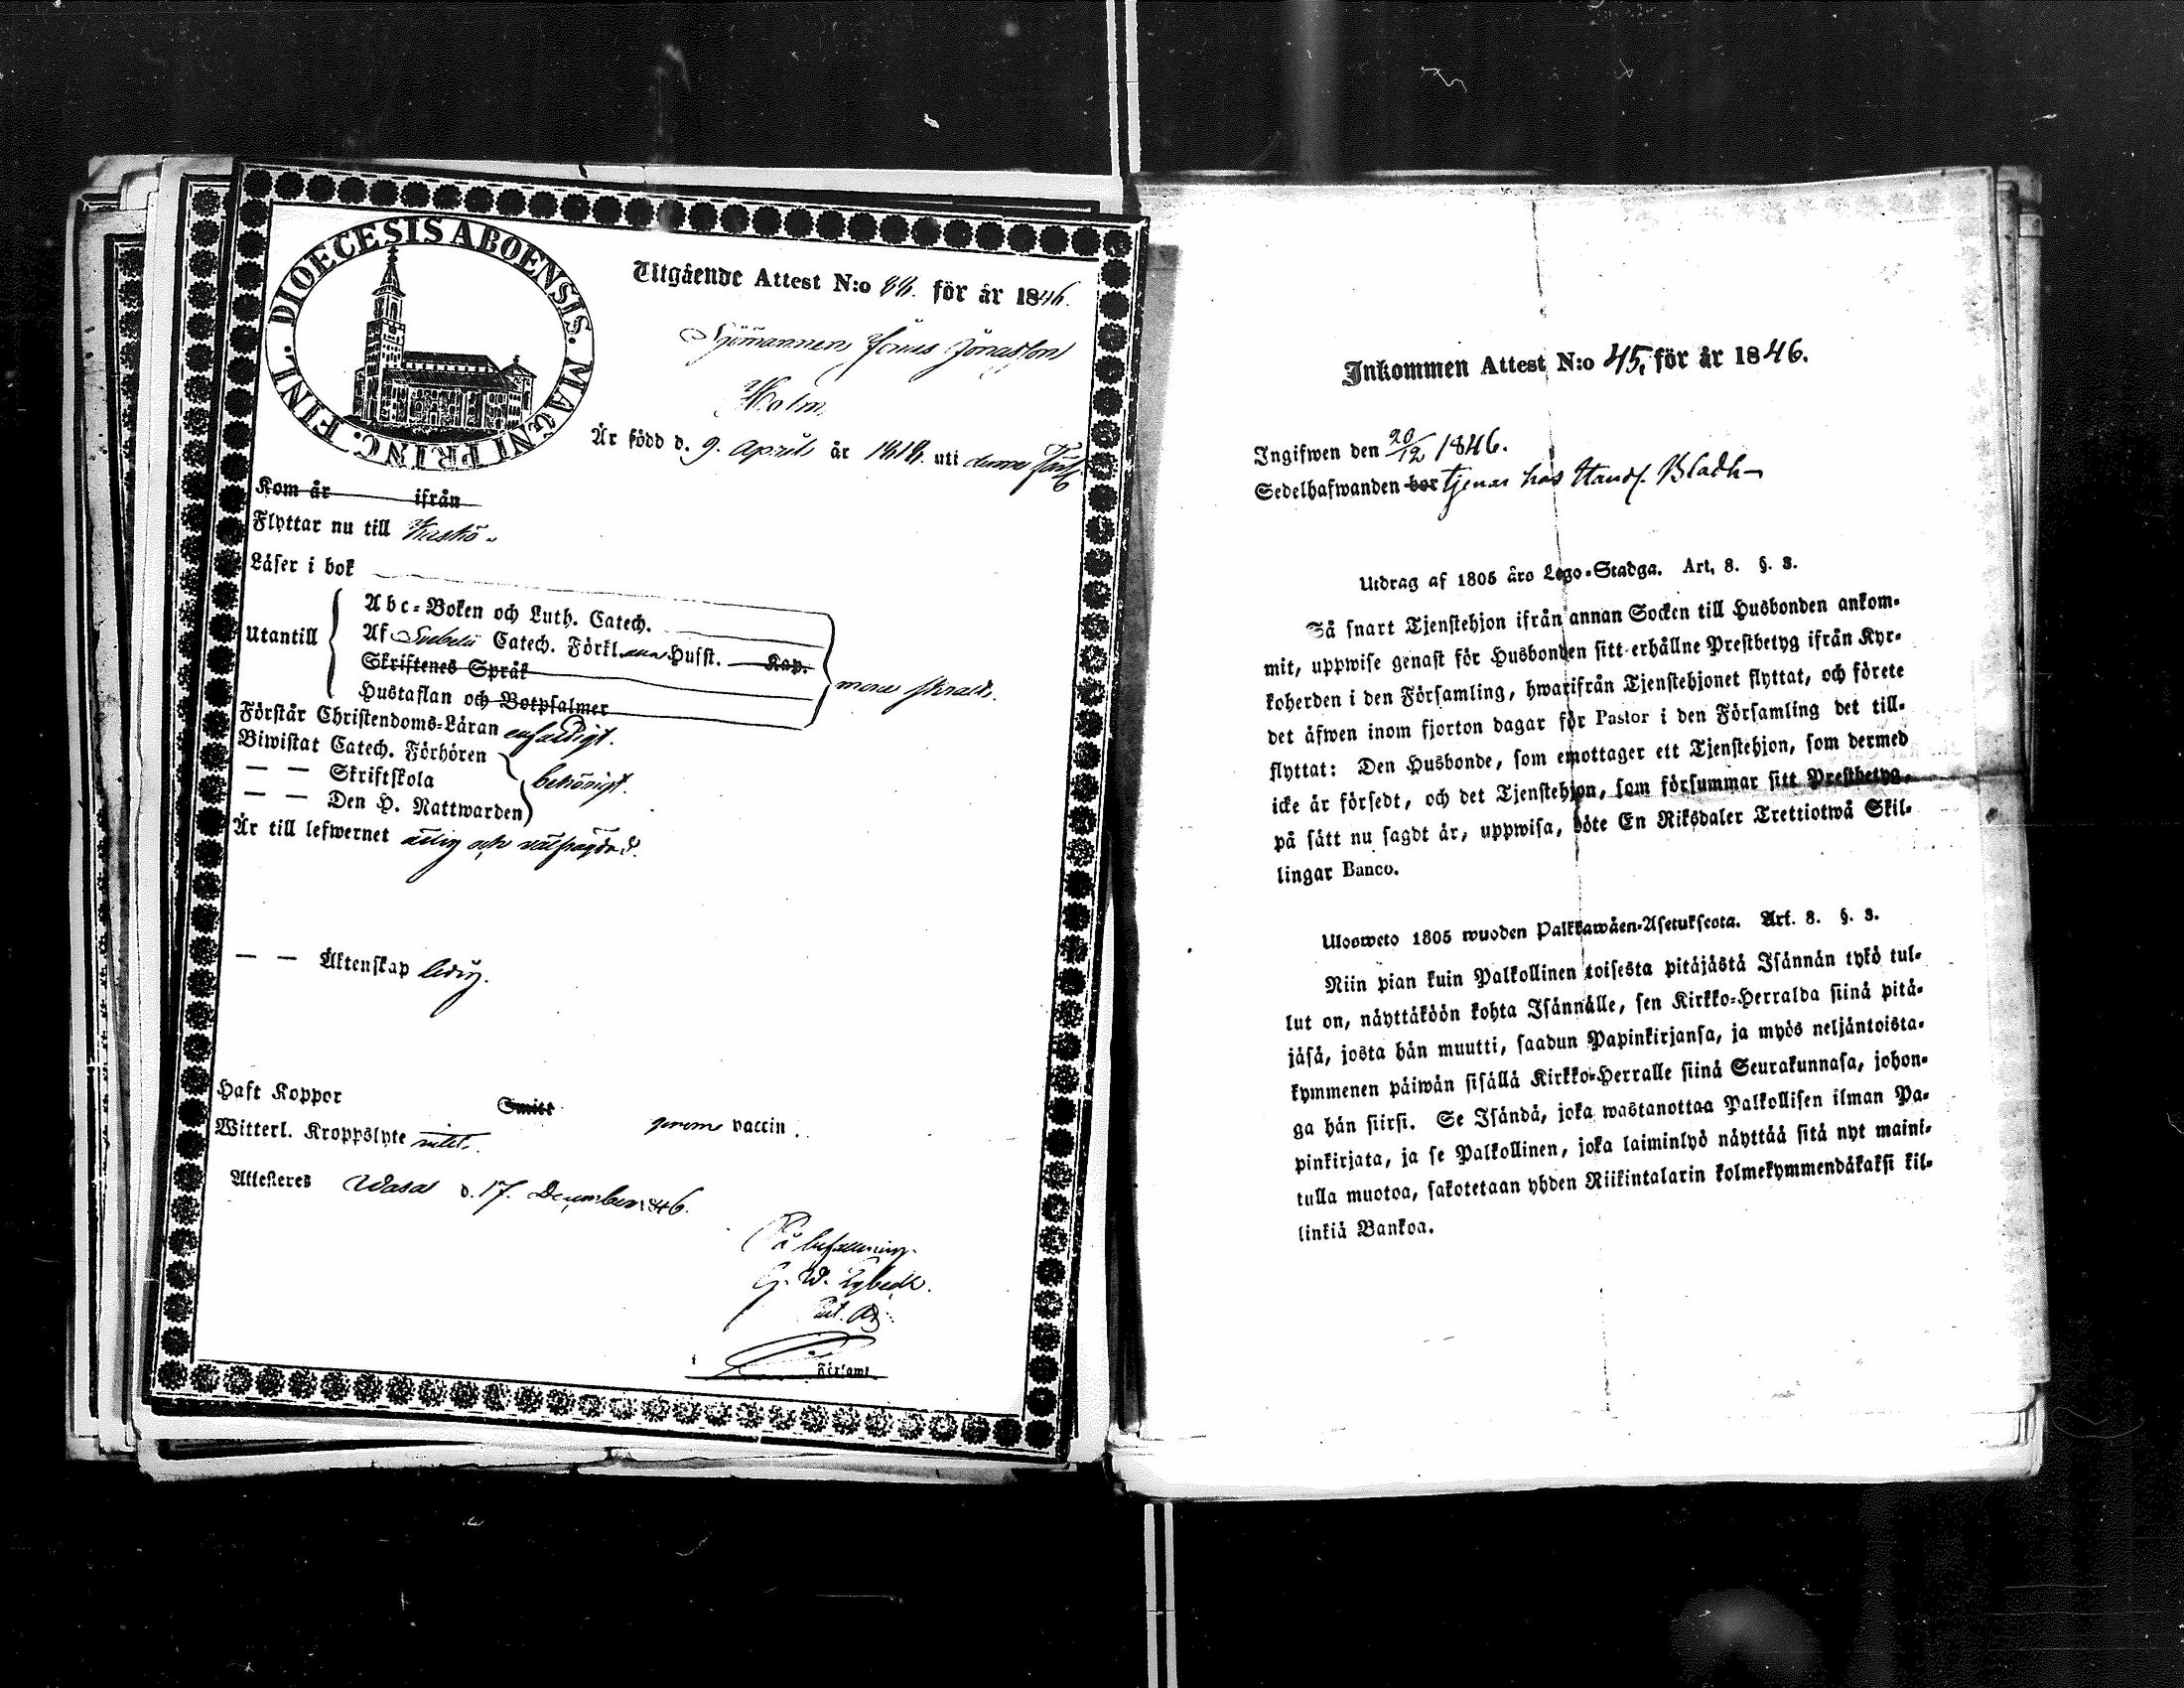 DIOECESIS ABOENSIS. MAGNI PRINC. FINL.
Utgående Attest N:o 88. för år 1846.
Sjömannen Jonasson
Holm
Är född d. 9. April år 1818. uti denna
Kom år ifrån
Flyttar nu till Kaskö.
Läser i bok
Utantill
Abc-Boken och Luth. Catech.
Af Svebelii Catech. Förkl. Husst. Kap.
Skriftenes Språk
Hustaflan och Botpsalmer
Förstår Christendoms-Läran enfaldigt.
Biwistat Catech. Förhören
— — Skriftskola
— — Den H. Nattwarden
behörigt.
Är till lefwernet ärlig och välfrägdad.
— — Äktenskap ledig.
Haft Koppor Smitt genom vaccin.
Witterl. Kroppslyte intet.
Attesteres Wasa d. 17. December 1846.
På befallning.
G. W.
Församl
Inkommen Attest N:o 45. för år 1846.
Ingifwen den 20/12 1846.
Sedelhafwanden bor tjenar hos Handl. Bladh
Utdrag af 1805 års Lego-Stadga. Art. 8. §. 3.
Så snart Tjenstehjon ifrån annan Socken till Husbonden ankom-
mit, uppwise genast för Husbonden sitt erhållne Prestbetyg ifrån Kyr-
koherden i den Församling, hwarifrån Tjenstehjonet flyttat, och förete
det äfwen inom fjorton dagar för Pastor i den Församling det till-
flyttat: Den Husbonde, som emottager ett Tjenstehjon, som dermed
icke är försedt, och det Tjenstehjon, som försummar sitt Prestbetyg,
på sätt nu sagdt är, uppwisa, böte En Riksdaler Trettiotwå Skil-
lingar Banco.
Ulosweto 1805 wuoden Palkkawäen-Asetuksesta. Art. 8. §. 3.
Niin pian kuin Palkollinen toisesta pitäjästä Isännän tykö tul-
lut on, näyttäköön kohta Isännälle, sen Kirkko-Herralda siinä pitä-
jäsä, josta hän muutti, saadun Papinkirjansa, ja myös neljäntoista-
kymmenen päiwän sisällä Kirkko-Herralle siinä Seurakunnasa, johon-
ga hän siirsi. Se Isändä, joka wastanottaa Palkollisen ilman Pa-
pinkirjata, ja se Palkollinen, joka laiminlyö näyttää sitä nyt maini-
tulla muotoa, sakotetaan yhden Riikintalarin kolmekymmendäkaksi kil-
linkiä Bankoa.